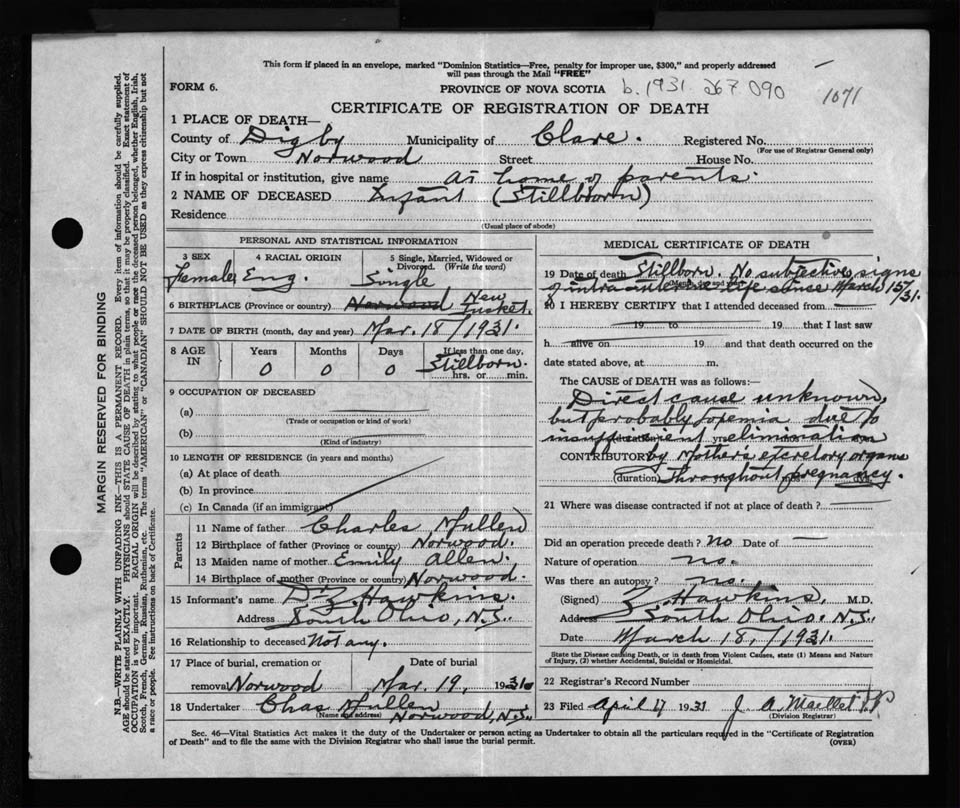 This form if placed in an envelope, marked "Dominion Statistics—Free, penalty for improper use, $300," and properly addressed
will pass through the Mail "FREE"
FORM 6.
PROVINCE OF NOVA SCOTIA
b. 1931. 267 090
1071
CERTIFICATE OF REGISTRATION OF DEATH
1 PLACE OF DEATH—
County of Digby Municipality of Clare. Registered No.
(For use of Registrar General only)
City or Town Norwood Street House No.
If in hospital or institution, give name At home of parents.
2 NAME OF DECEASED Infant (Stillborn)
Residence
(Usual place of abode)
PERSONAL AND STATISTICAL INFORMATION
3 SEX 4 RACIAL ORIGIN 5 Single, Married, Widowed or
Divorced. (Write the word)
Female Eng. Single
6 BIRTHPLACE (Province or country) Norwood New
Tusket.
7 DATE OF BIRTH (month, day and year) Mar. 18/1931.
8 AGE
IN
Years Months Days If less than one day,
0 0 0 Stillborn.
hrs. or min.
9 OCCUPATION OF DECEASED
(a)
(Trade or occupation or kind of work)
(b)
(Kind of industry)
10 LENGTH OF RESIDENCE (in years and months)
(a) At place of death
(b) In province
(c) In Canada (if an immigrant)
Parents
11 Name of father Charles Mullen
12 Birthplace of father (Province or country) Norwood.
13 Maiden name of mother Emily Allen.
14 Birthplace of mother (Province or country) Norwood.
15 Informant's name Dr Z Hawkins.
Address South Ohio, N.S.
16 Relationship to deceased Not any.
17 Place of burial, cremation or Date of burial
removal Norwood Mar. 19, 1931
18 Undertaker Chas Mullen
(Name and address) Norwood, N.S.
MEDICAL CERTIFICATE OF DEATH
19 Date of death Stillborn. No subjective signs
of intra-uterine life since March 15/31.
20 I HEREBY CERTIFY that I attended deceased from
19 to 19 that I last saw
h alive on 19 and that death occurred on the
date stated above, at m.
The CAUSE OF DEATH was as follows:—
Direct cause unknown,
but probably toxemia due to
insufficient elimination
CONTRIBUTORY by Mothers excretory organs
(duration) throughout pregnancy.
21 Where was disease contracted if not at place of death?
Did an operation precede death? no Date of —
Nature of operation no.
Was there an autopsy? no.
(Signed) Z Hawkins, M.D.
Address South Ohio. N.S.
Date March 18, 1931.
State the Disease causing Death, or in death from Violent Causes, state (1) Means and Nature
of Injury, (2) whether Accidental, Suicidal or Homicidal.
22 Registrar's Record Number
23 Filed April 17 1931 J. A. Maillet
(Division Registrar)
Sec. 46—Vital Statistics Act makes it the duty of the Undertaker or person acting as Undertaker to obtain all the particulars required in the "Certificate of Registration
of Death" and to file the same with the Division Registrar who shall issue the burial permit.
(OVER)
MARGIN RESERVED FOR BINDING
N.B.—WRITE PLAINLY WITH UNFADING INK—THIS IS A PERMANENT RECORD. Every item of information should be carefully supplied.
AGE should be stated EXACTLY. PHYSICIANS should STATE CAUSE OF DEATH in plain terms, so that it may be properly classified. Exact statement of
OCCUPATION is very important. RACIAL ORIGIN will be described by stating to what people or race the deceased person belonged, whether English, Irish,
Scotch, French, German, Russian, Ruthenian, etc. The terms "AMERICAN" or "CANADIAN" SHOULD NOT BE USED as they express citizenship but not
a race or people. See instructions on back of Certificate.